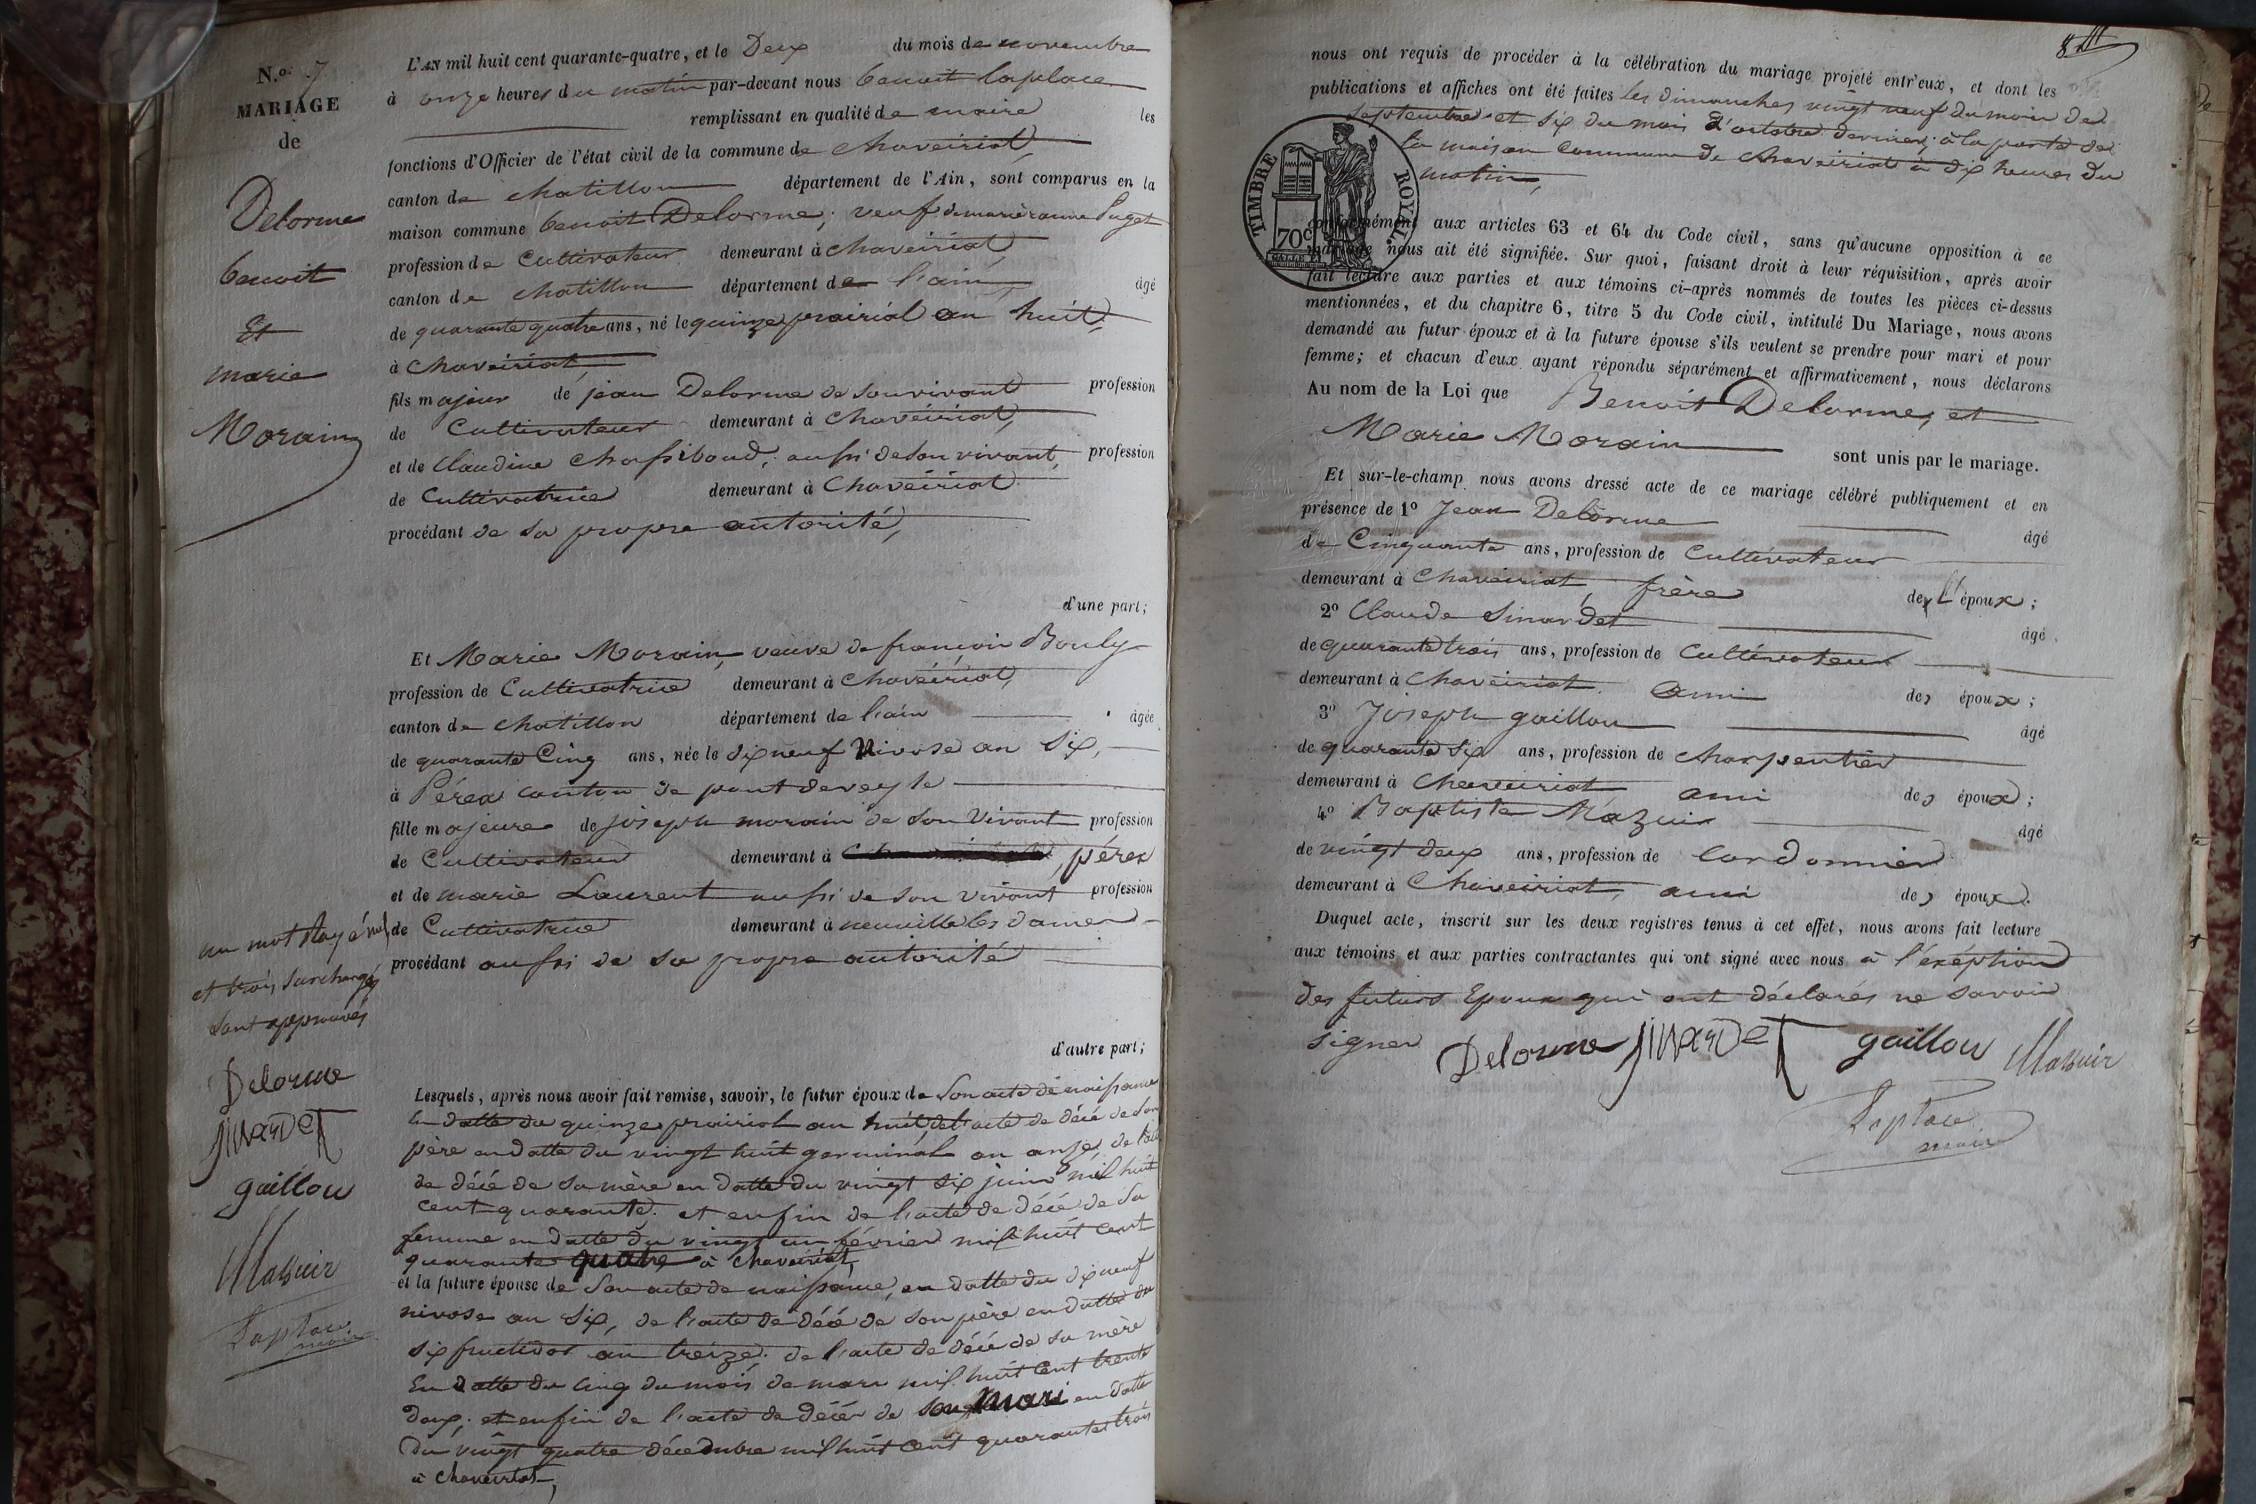 N.o 7
MARIAGE
de
Delorme
benoit
Et
marie
Morain
L'AN mil huit cent quarante-quatre, et le Deux du mois de novembre
à onze heures du matin par-devant nous benoit laplace
remplissant en qualité de maire les
fonctions d'Officier de l'état civil de la commune de chaveiriat,
canton de chatillon département de l'Ain, sont comparus en la
maison commune benoit Delorme, veuf de marie anne Puget
profession de Cultivateur demeurant à chaveiriat,
canton de chatillon département de l'ain, âgé
de quarante quatre ans, né le quinze prairial an huit,
à chaveiriat,
fils majeur de jean Delorme de son vivant profession
de Cultivateur demeurant à chavéiriat,
et de Claudine Chassiboud, aussi de son vivant, profession
de Cultivatrice demeurant à Chavéiriat
procédant de sa propre autorité,
d'une part;
Et Marie Morain, veuve de françois Bouly
profession de Cultivatrice demeurant à Chavéiriat,
canton de chatillon département de l'ain âgée
de quarante Cinq ans, née le dix neuf Nivose an six,
à Pérex canton de pont de veyle
fille majeure de joseph morain de son vivant profession
de Cultivateur demeurant à pérex
et de marie Laurent aussi de son vivant profession
de Cultivatrice demeurant à neuville les dames
procédant aussi de sa propre autorité
un mot rayé nul
et trois surchargés
sont approuvés
Delorme
SINARDET
gaillou
Mazuir
Laplace
maire
d'autre part;
Lesquels, après nous avoir fait remise, savoir, le futur époux de son acte de naissance
en datte du quinze prairial an huit, de l'acte de décé de son
père en datte du vingt huit germinal an onze, de l'acte
de décé de sa mère en datte du vingt six juin mil huit
cent quarante. et enfin de l'acte de décé de sa
femme en datte du vingt un février mil huit cent
quarante quatre à chaveiriat,
et la future épouse de son acte de naissance, en datte du dix neuf
nivose an six, de l'acte de décé de son père en datte du
six fructidor an treize. de l'acte de décé de sa mère
En datte du cinq du mois de mars mil huit cent trente
deux, et enfin de l'acte de décér de son mari en datte
du vingt quatre décembre mil huit cent quarante trois
à chaveiriat,
nous ont requis de procéder à la célébration du mariage projeté entr'eux, et dont les
publications et affiches ont été faites les dimanches vingt neuf du mois de
septembre et six du mois d'octobre dernier, à la porte de
la maison commune de chaveiriat à dix heures du
matin,
TIMBRE ROYAL.
70c
conformément aux articles 63 et 64 du Code civil, sans qu'aucune opposition à ce
mariage nous ait été signifiée. Sur quoi, faisant droit à leur réquisition, après avoir
fait lecture aux parties et aux témoins ci-après nommés de toutes les pièces ci-dessus
mentionnées, et du chapitre 6, titre 5 du Code civil, intitulé Du Mariage, nous avons
demandé au futur époux et à la future épouse s'ils veulent se prendre pour mari et pour
femme; et chacun d'eux ayant répondu séparément et affirmativement, nous déclarons
Au nom de la Loi que Benoit Delorme, et
Marie Morain
sont unis par le mariage.
Et sur-le-champ nous avons dressé acte de ce mariage célébré publiquement et en
présence de 1o Jean Delorme âgé
de Cinquante ans, profession de Cultivateur
demeurant à Chavéiriat, frère de L'époux;
2o Claude Sinardet âgé
de quarante trois ans, profession de Cultivateur
demeurant à Chaveiriat. ami des époux;
3o Joseph gaillou âgé
de quarante six ans, profession de charpentier
demeurant à Chaveiriat ami des époux;
4o Baptiste Mazuir âgé
de vingt deux ans, profession de Cordonnier
demeurant à Chaveiriat, ami des époux.
Duquel acte, inscrit sur les deux registres tenus à cet effet, nous avons fait lecture
aux témoins et aux parties contractantes qui ont signé avec nous à l'éxéption
des futurs Epoux qui ont déclarés ne savoir
signer Delorme SINARDET gaillou Mazuir
Laplace
maire